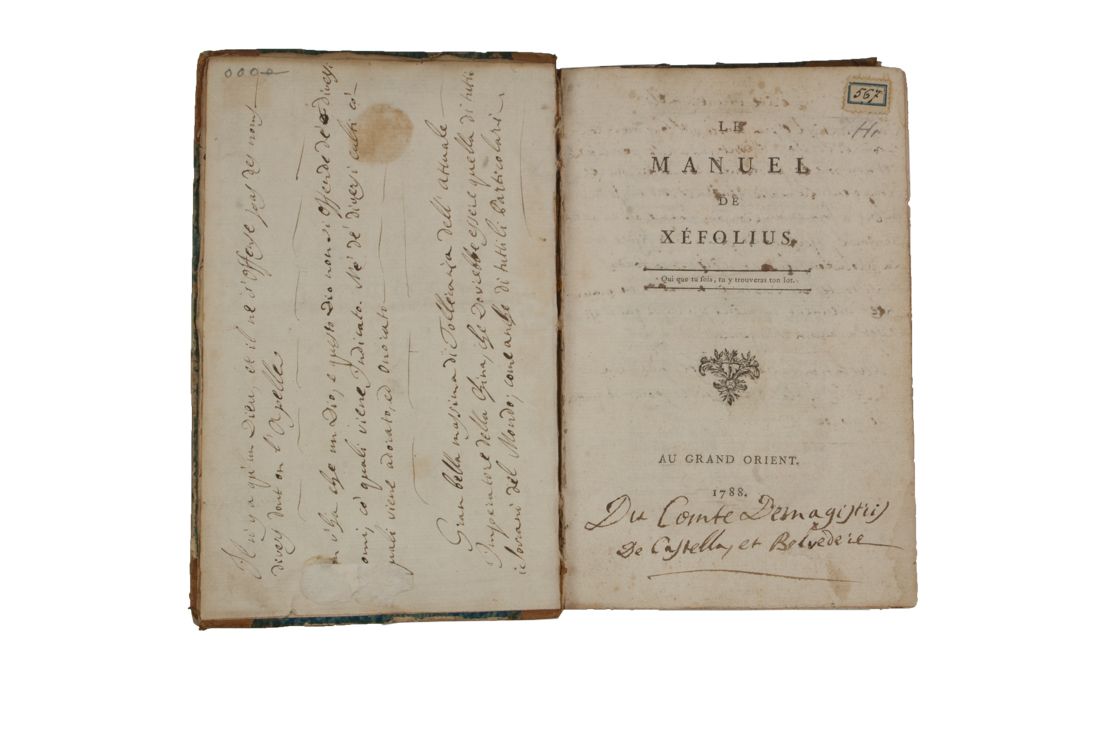 Il n'y a qu'un Dieu, et il ne s'offense pas des noms
divers dont on l'apelle
v'ha che un Dio, e questo Dio non si offende de diversi
nomi, co quali viene Indicato. Nè de diversi culti co
quali viene adorato, ed onorato
Gran bella massima di Tolleranza dell'attuale
Imperatore della China, che Dovrebbe essere quella di tutti
i sovrani del Mondo; come anche di tutti li Particolari
567
LE
MANUEL
DE
XÉFOLIUS.
Qui que tu sois, tu y trouveras ton lot.
AU GRAND ORIENT.
1788.
Du Comte Demagistris
De Castella, et Belvedere